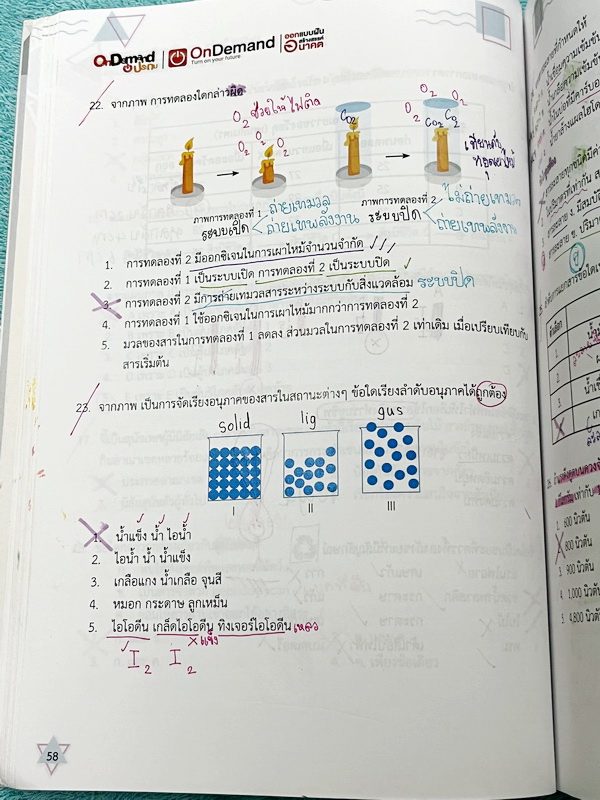 OnDemand ประถม | OnDemand Turn on your future | ออกแบบฝัน สร้างสรรค์ อนาคต
22. จากภาพ การทดลองใดกล่าวผิด
O2 ช่วยให้ไฟติด
O2 O2 O2
CO2
O2 O2 O2
CO2 CO2
เทียนดับ
ภาพการทดลองที่ 1 ถ่ายเทมวล
ระบบเปิด ถ่ายเทพลังงาน
ภาพการทดลองที่ 2 ไม่ถ่ายเทมวล
ระบบปิด ถ่ายเทพลังงาน
1. การทดลองที่ 2 มีออกซิเจนในการเผาไหม้จำนวนจำกัด
2. การทดลองที่ 1 เป็นระบบเปิด การทดลองที่ 2 เป็นระบบปิด
3. การทดลองที่ 2 มีการถ่ายเทมวลสารระหว่างระบบกับสิ่งแวดล้อม ระบบปิด
4. การทดลองที่ 1 ใช้ออกซิเจนในการเผาไหม้มากกว่าการทดลองที่ 2
5. มวลของสารในการทดลองที่ 1 ลดลง ส่วนมวลในการทดลองที่ 2 เท่าเดิม เมื่อเปรียบเทียบกับ
สารเริ่มต้น
23. จากภาพ เป็นการจัดเรียงอนุภาคของสารในสถานะต่างๆ ข้อใดเรียงลำดับอนุภาคได้ถูกต้อง
solid liq gus
I II III
1. น้ำแข็ง น้ำ ไอน้ำ
2. ไอน้ำ น้ำ น้ำแข็ง
3. เกลือแกง น้ำเกลือ จุนสี
4. หมอก กระดาษ ลูกเหม็น
5. ไอโอดีน เกล็ดไอโอดีน ทิงเจอร์ไอโอดีน เหลว
แข็ง
I2 I2
58
2. 600 นิวตัน
800 นิวตัน
3. 900 นิวตัน
4. 1,000 นิวตัน
5. 4,800 นิวตัน